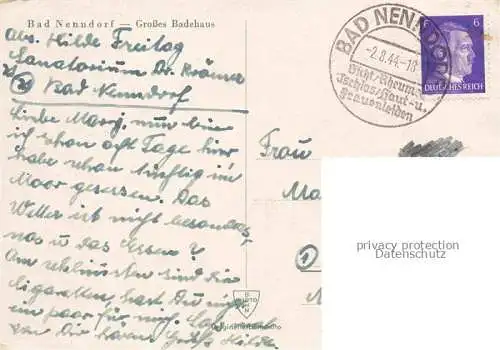 Bad Nenndorf — Großes Badehaus
Abs. Hilde Freitag
Sanatorium Dr.
Bad Nenndorf
Liebe Marg. nun bin
ich schon acht Tage hier
habe schon tüchtig im
Moor gesessen. Das
Wetter ist nicht besonders
u das Essen?
Am schlimmsten sind die
Zigaretten, hast Du nicht
ein paar für mich. Lass mal
von Dir hören. Gruß Hilde.
BAD NENNDORF
-2.8.44.-18
Gicht/Rheuma
Ischias/Haut-u.
Frauenleiden
6
DEUTSCHES REICH
Frau
privacy protection
Datenschutz